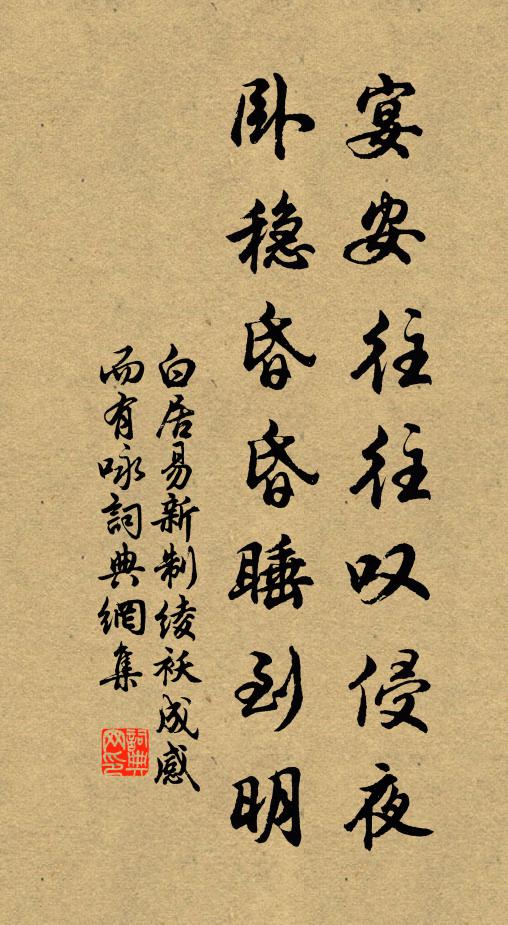 宴安往往叹侵夜
卧稳昏昏睡到明
白居易新制绫袄成感
而有咏詞典網集
詞典
网印